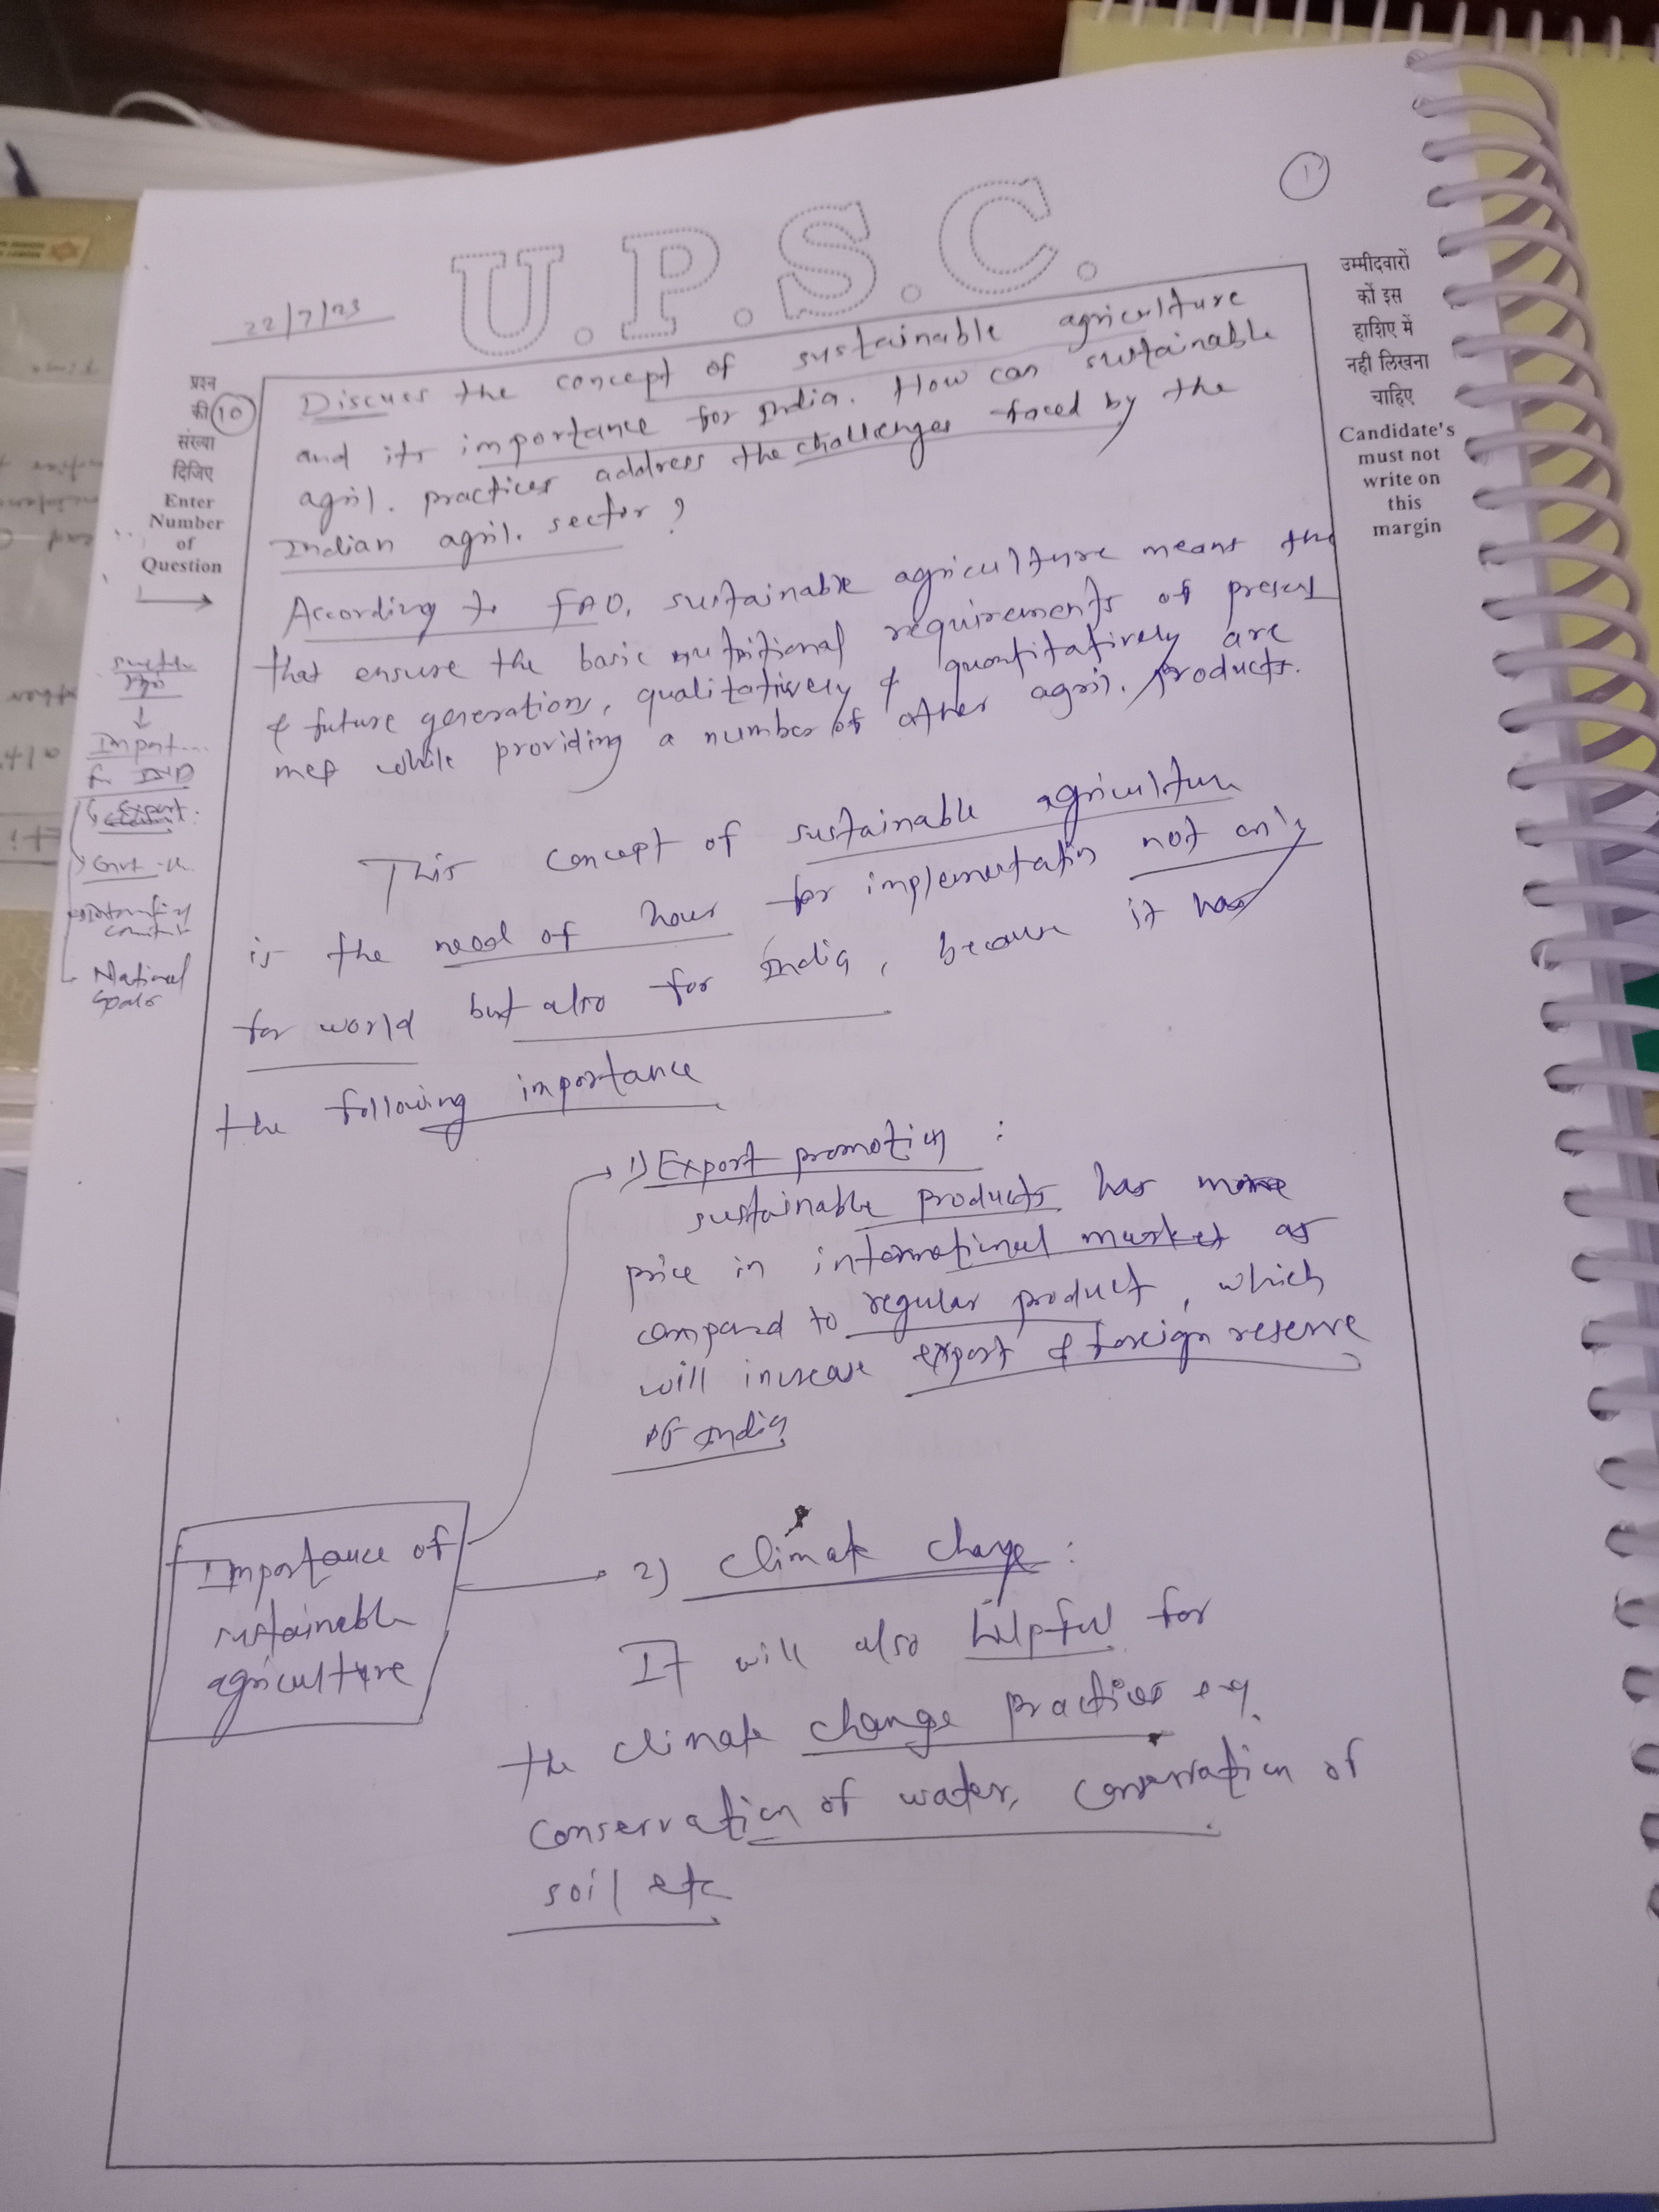 1
U.P.S.C.
22/7/23
प्रश्न
की
संख्या
दिजिए
Enter
Number
of
Question
10
उम्मीदवारों
को इस
हाशिए में
नही लिखना
चाहिए
Candidate's
must not
write on
this
margin
Discuss the concept of sustainable agriculture
and its importance for India. How can sustainable
agril. practices address the challenges faced by the
Indian agril. sector?
According to FAO, sustainable agriculture means the
that ensure the basic nutritional requirements of present
& future generations, qualitatively & quantitatively are
met while providing a number of other agril. products.
This concept of sustainable agriculture
is the need of hour for implementatin not only
for world but also for India, because it has
the following importance
Import...
for IND
Export.
National
Goals
1) Export promotion :
sustainable products has more
price in international market as
compared to regular product, which
will increase export & foreign reserve
of India
Importance of
sustainable
agriculture
2) climate change :
It will also helpful for
the climate change practices eg.
conservation of water, conservation of
soil etc